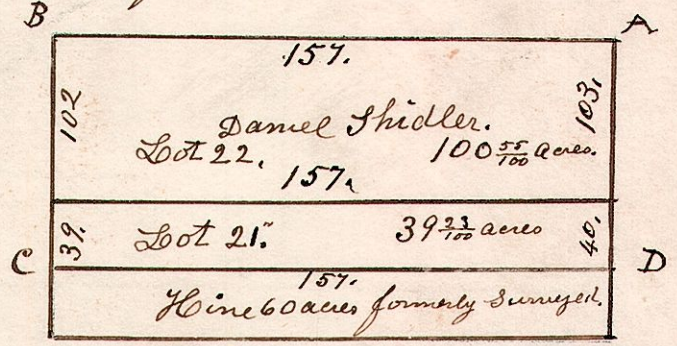 B A
157.
102 103.
Daniel Shidler.
Lot 22. 100 55/100 acres.
157.
39. Lot 21. 39 23/100 acres 40.
C D
157.
Hine 60 acres formerly Surveyed.